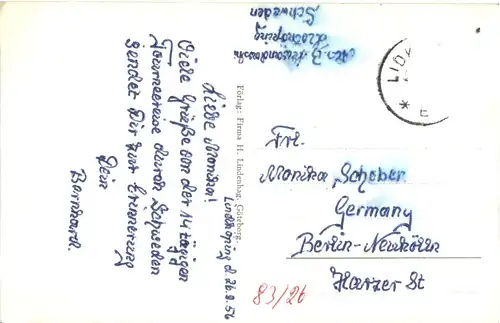 Lidköping d. 26.8.56
Liebe Monika!
Viele Grüße von der 14 tägigen
Tourneereise durch Schweden
sendet Dir zur Erinnerung
Dein
Bernhard.
Förlag: Firma H. Lindenhag, Göteborg.
Lidköping
Schweden
LIDK
Frl.
Monika Scheber
Germany
Berlin-Neukölln
Harzer St
83/26